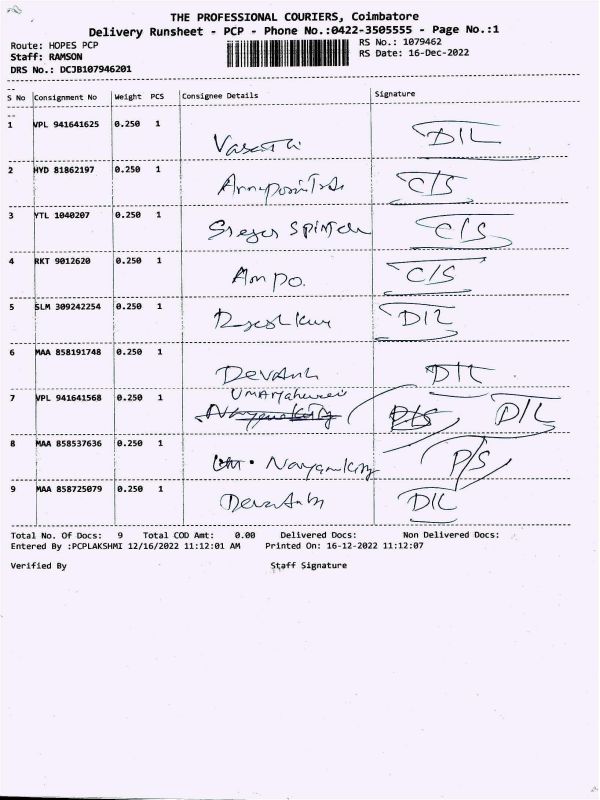 THE PROFESSIONAL COURIERS, Coimbatore
Delivery Runsheet - PCP - Phone No.:0422-3505555 - Page No.:1
Route: HOPES PCP RS No.: 1079462
Staff: RAMSON RS Date: 16-Dec-2022
DRS No.: DCJB107946201
S No Consignment No Weight PCS Consignee Details Signature
1 VPL 941641625 0.250 1 D/L
2 HYD 81862197 0.250 1 C/S
3 YTL 1040207 0.250 1 C/S
4 RKT 9012620 0.250 1 Ampo. C/S
5 SLM 309242254 0.250 1 D/L
6 MAA 858191748 0.250 1 D/L
7 VPL 941641568 0.250 1 D/L
8 MAA 858537636 0.250 1 P/S
9 MAA 858725079 0.250 1 D/L
Total No. Of Docs: 9 Total COD Amt: 0.00 Delivered Docs: Non Delivered Docs:
Entered By :PCPLAKSHMI 12/16/2022 11:12:01 AM Printed On: 16-12-2022 11:12:07
Verified By Staff Signature